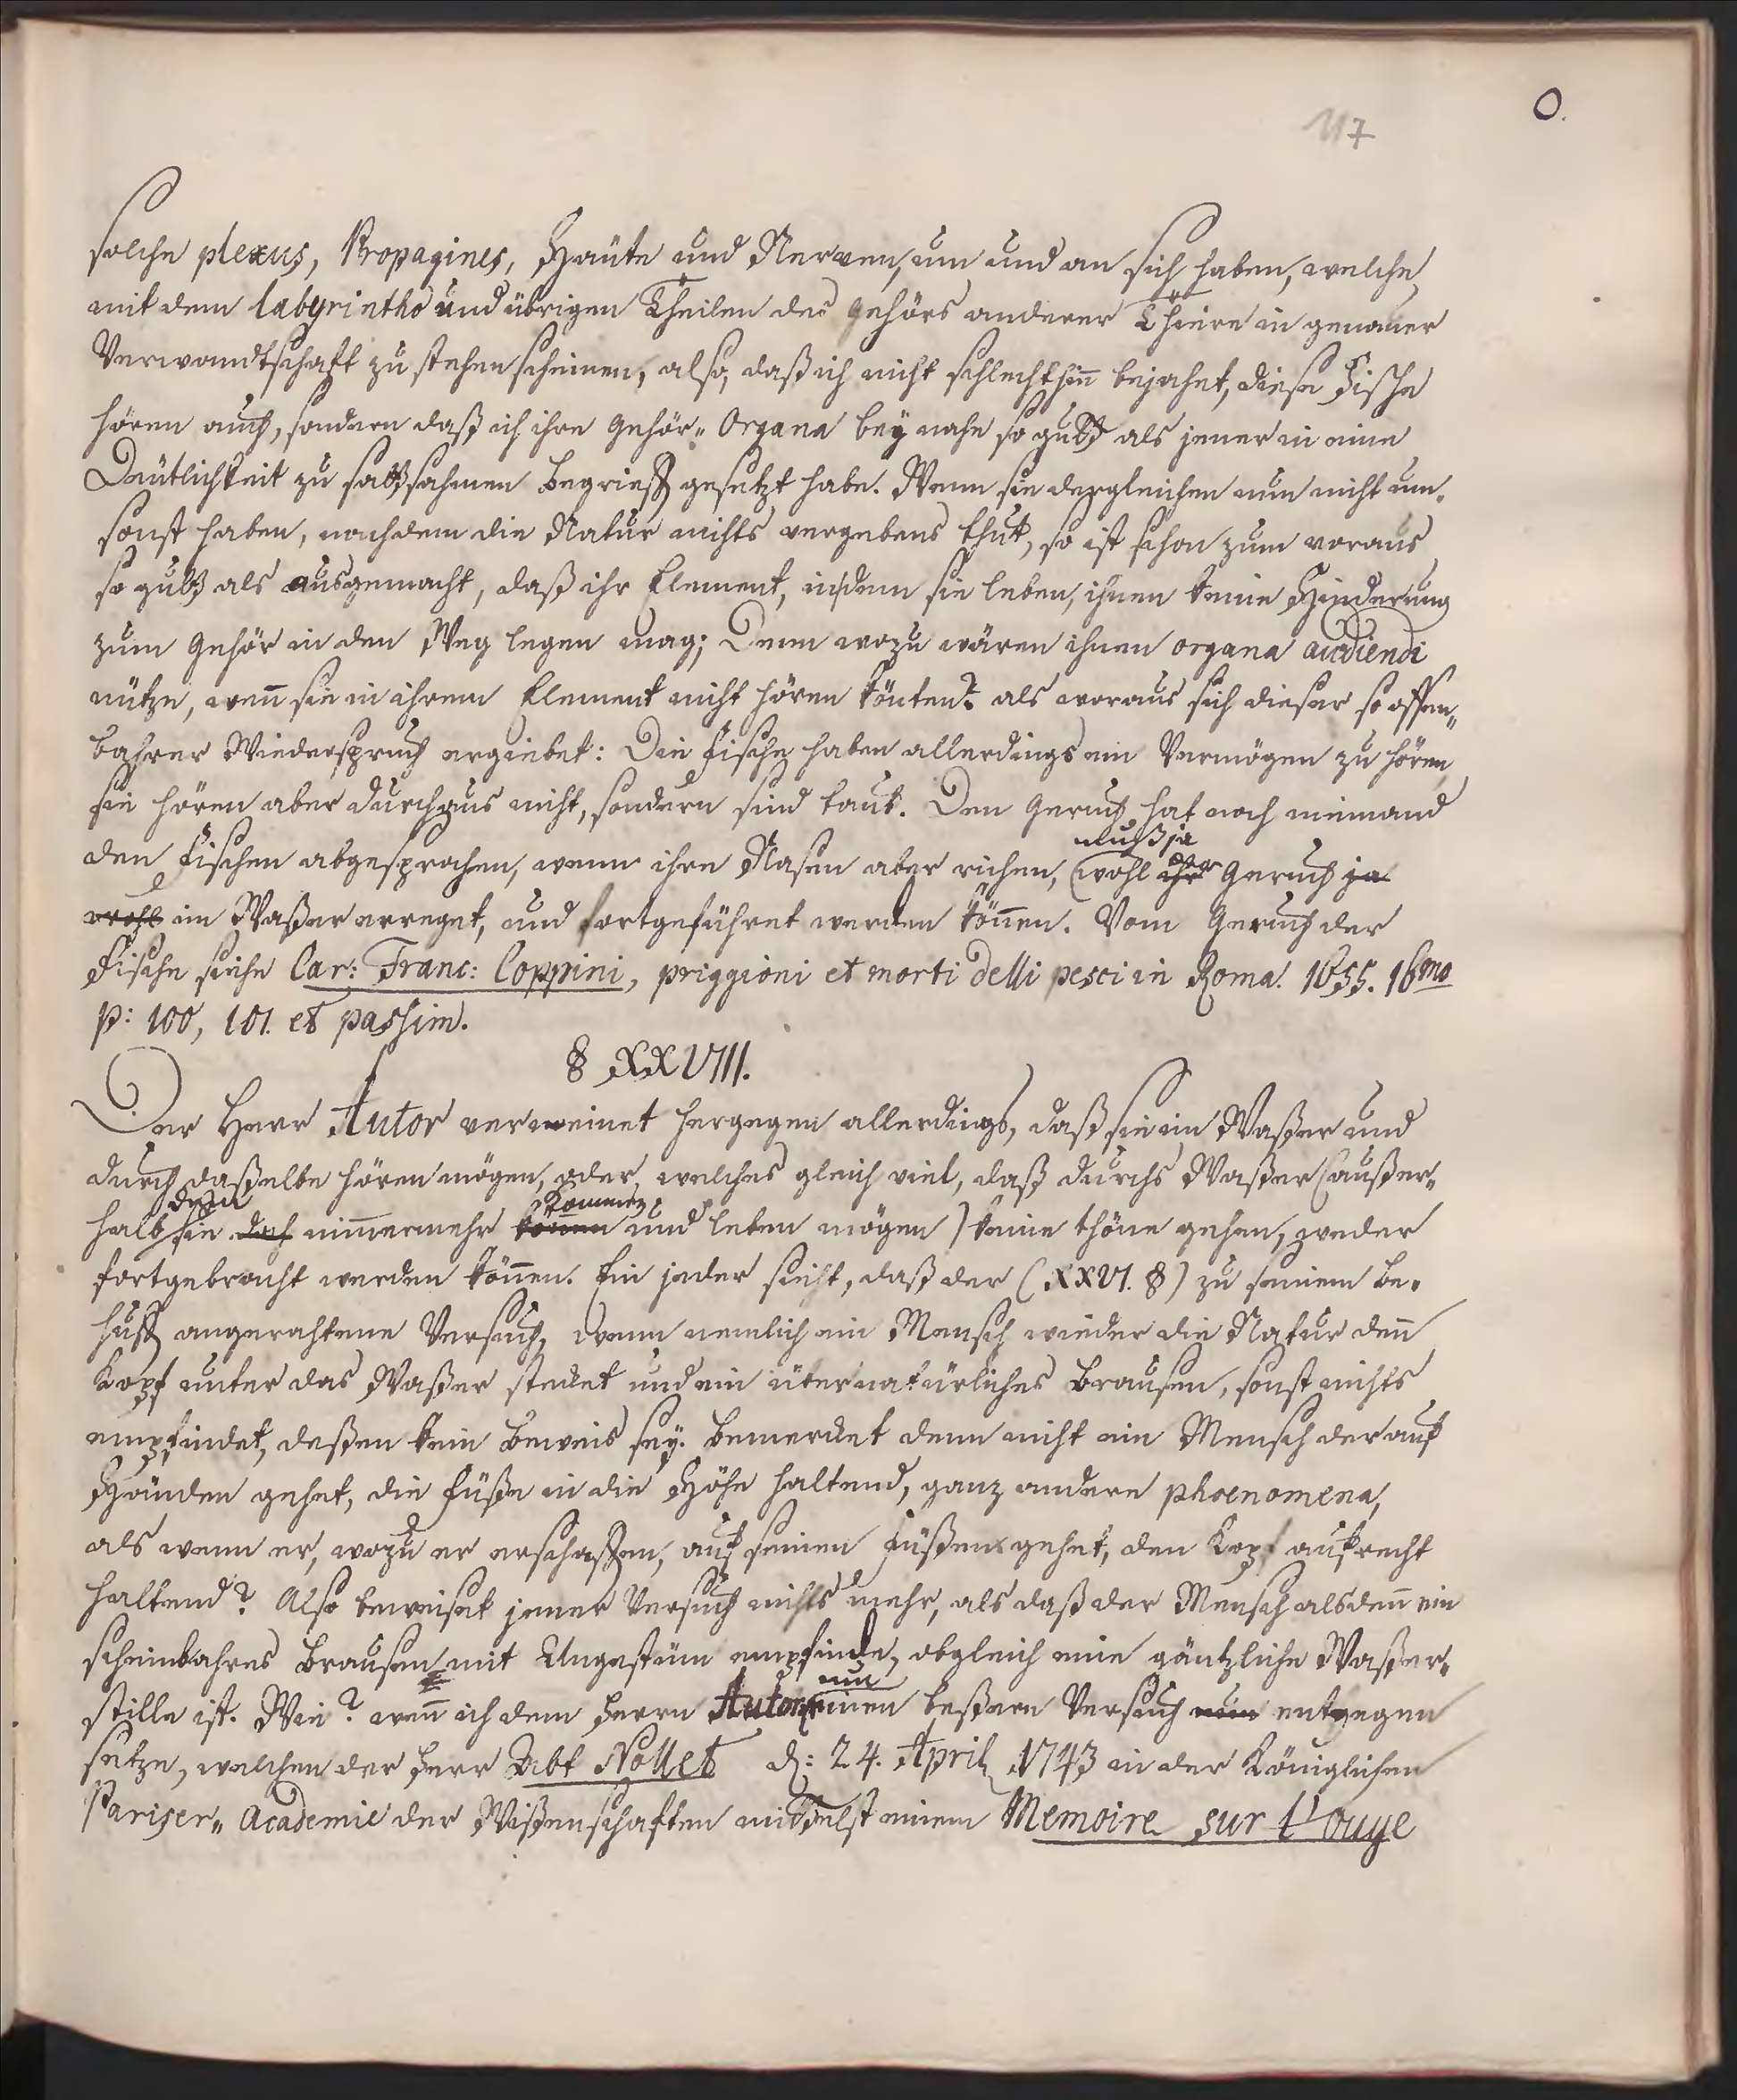 117
O.
solche plexus, Propagines, Haüte und Nerven, um und an sich haben, welche
mit dem labyrintho und übrigen Theilen des gehörs anderer Thiere in genauer
Verwandtschaft zu stehen scheinen, also, daß ich nicht schlechthin bejahet, diese Fische
hören auch, sondern daß ich ihre Gehör„ Organa bey nahe so gutt als jener in eine
Deütlichkeit zu sattsahmen Begrieff gesetzt habe. Wenn sie dergleichen nun nicht um„
sonst haben, nachdem die Natur nichts vergebens thut, so ist schon zum voraus
so gutt als ausgemacht, daß ihr Element, in dem sie leben, ihnen keine Hinderung
zum Gehör in den Weg legen mag; Denn wozu wären ihnen organa audiendi
nütze, wen̄ sie in ihrem Element nicht hören könten? als woraus sich dieser so offen„
bahrer Wiederspruch ergiebet: Die Fische haben allerdings ein Vermögen zu hören,
sie hören aber durchaus nicht, sondern sind taub. Den Geruch hat noch niemand
muß ja
den Fischen abgesprochen, wenn ihre Nasen aber riechen, wohl ihr der Geruch ja
wohl im Waßer erreget, und fortgeführet werden kön̄en. Vom Geruch der
Fische siehe Car: Franc: Coppini, priggioni et morti delli pesci in Roma. 1655. 16mo
p: 100, 101. et passim.
§ XXVIII.
Der Herr Autor verneinet hergegen allerdings, daß sie im Waßer und
durch daßelbe hören mögen, oder, welches gleich viel, daß durchs Waßer (außer„
deßen kommen
halb sie doch nim̄ermehr können und leben mögen) keine thöne gehen, weder
fortgebracht werden kön̄en. Ein jeder sieht, daß der (XXVI. §) zu seinem Be„
huff angerahtene Versuch, wenn nemlich ein Mensch wieder die Natur den̄
Kopf unter das Waßer stecket und ein übernatürliches Brausen, sonst nichts
empfindet, deßen kein Beweis sey. Bemercket denn nicht ein Mensch der auf
Händen gehet, die Füße in die Höhe haltend, ganz andere phoenomena,
als wenn er, wozu er erschaffen, auf seinen Füßen gehet, den Kopf aufrecht
haltend? Also beweiset jener Versuch nichts mehr, als daß der Mensch alsden̄ ein
scheinbahres Brausen mit Ungestüm empfinde, obgleich eine gäntzliche Waßer„
nun
stille ist. Wie? wen̄ ich dem Herrn Autori einen beßern Versuch nun entgegen
setze, welchen der Herr Abt Nollet d: 24. April 1743 in der Königlichen
Pariser„ Academie der Wißenschaften mittelst einem Memoire sur l'ouye